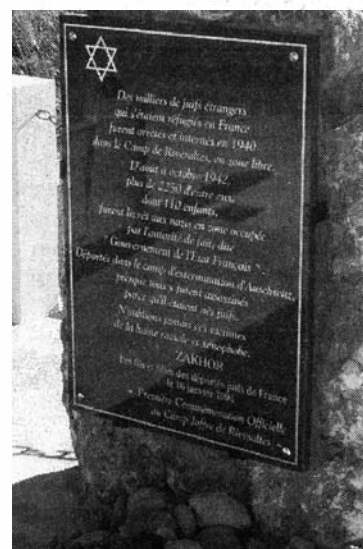 Des milliers de juifs étrangers
qui s'étaient réfugiés en France
furent arrêtés et internés en 1940
dans le Camp de Rivesaltes, en zone libre.
D'août à octobre 1942,
plus de 2250 d'entre eux,
dont 110 enfants,
furent livrés aux nazis en zone occupée
par l'autorité de fait, dite
"Gouvernement de l'Etat Français".
Déportés dans le camp d'extermination d'Auschwitz,
presque tous y furent assassinés
parce qu'ils étaient nés juifs.
N'oublions jamais ces victimes
de la haine raciale et xénophobe.
ZAKHOR
Les fils et filles des déportés juifs de France
le 16 janvier
Première Commémoration Officielle
du Camp Joffre de Rivesaltes